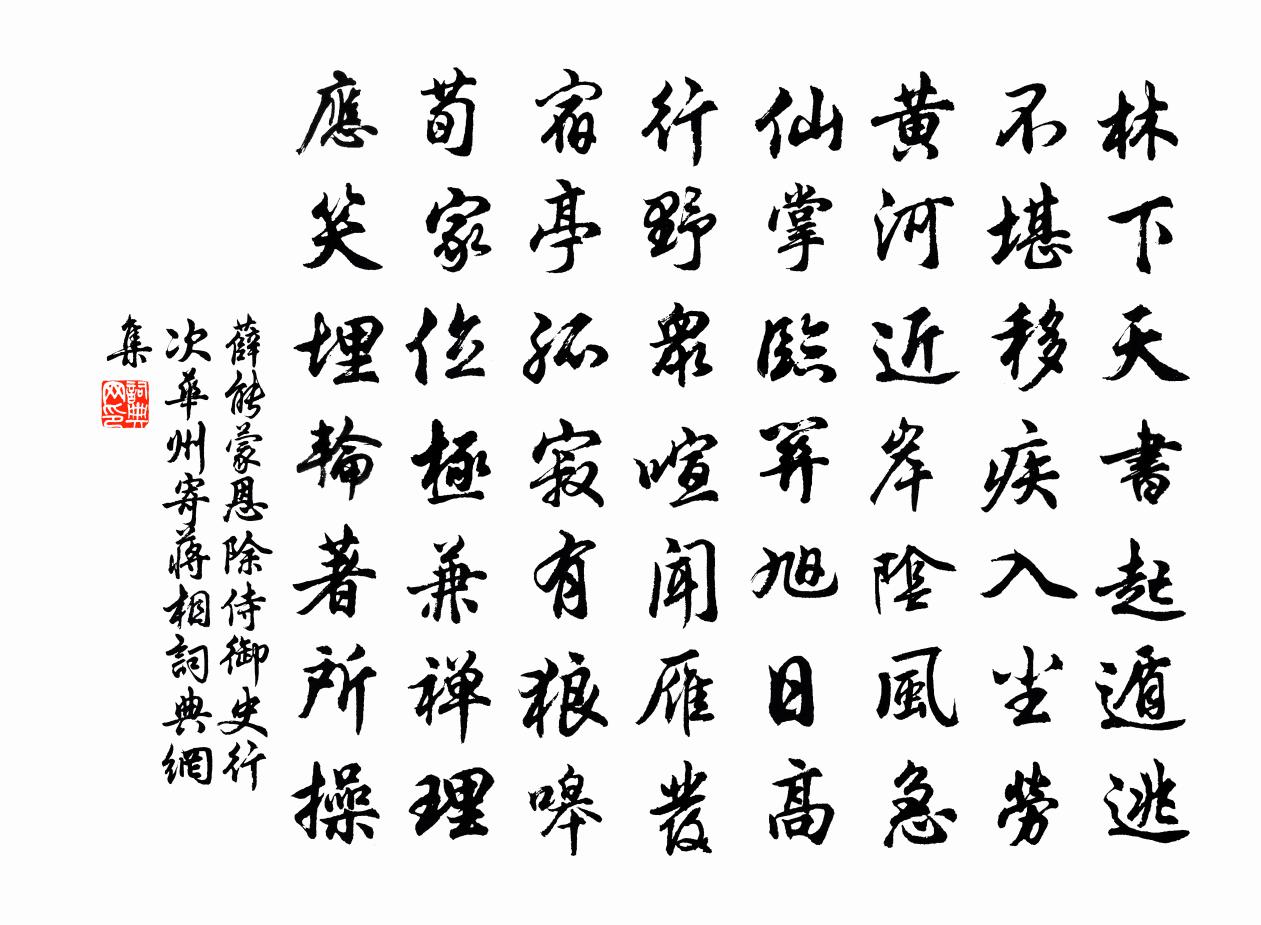 林下天書起遁逃
不堪移疾入尘勞
黃河近岸陰風急
仙掌臨關旭日高
行野眾喧聞雁發
宿亭孤寂有狼嗥
荀家位極兼禪理
應笑埋輪著所操
薛能蒙恩除侍御史行
次華州寄蔣相詞典網
集
詞典
网印